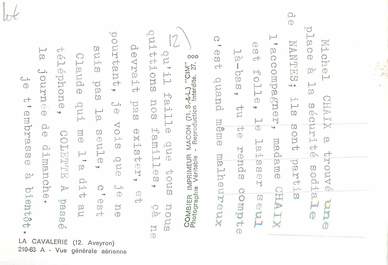 Michel CHAIX a trouvé une
place à la sécurité sodiale
de NANTES; ils sont partis
l'accompagner, madame CHAIX
est folle, le laisser seul
là-bas, tu te rends compte
c'est quand même malheureux
qu'il faille que tous nous
quittions nos familles, çà ne
devrait pas exister, et
pourtant, je vois que je ne
suis pas la seule, c'est
Claude qui me l'a dit au
téléphone, COLETTE A passé
la journée de dimanche.
je t'embrasse à bientôt.
Lot
12
COMBIER IMPRIMEUR MACON (S.-&-L.) "CIM"
Photographie Véritable - Reproduction Interdite
LA CAVALERIE (12. Aveyron)
210-63 A - Vue générale aérienne